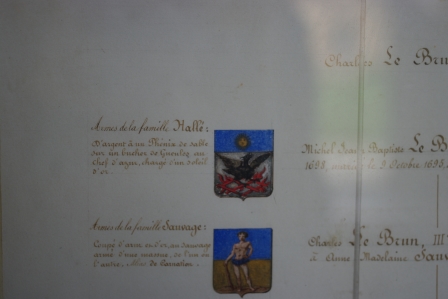 Charles Le Brun
Armes de la famille Hallé :
D'argent à un Phénix de sable
sur un bucher de Gueules au
Chef d'azur, chargé d'un Soleil
d'or.
Michel Jean Baptiste Le B
1695,
Armes de la famille Sauvage :
Coupé d'azur et d'or, au sauvage
armé d'une massue, de l'un en
l'autre,
Charles Le Brun, III
à Anne Madelaine Sauv